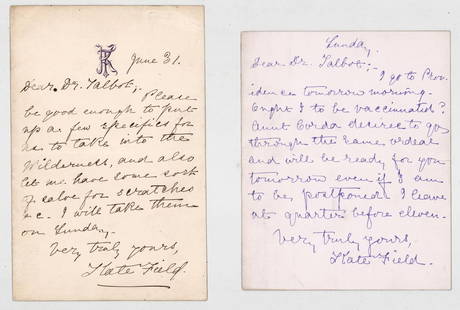 June 31.
Dear Dr. Talbot;-
Please
be good enough to put
up a few specifics for
us to take into the
Wilderness, and also
let me have some sort
of salve for scratches
&c. I will take them
on Sunday.
Very truly yours,
Kate Field.
Sunday.
Dear Dr. Talbot;-
I go to Prov-
idence tomorrow morning.
Ought I to be vaccinated?
Aunt Corda desires to go
through the same ordeal
and will be ready for you
tomorrow even if I am
to be postponed. I leave
at quarter before eleven.
Very truly yours,
Kate Field.